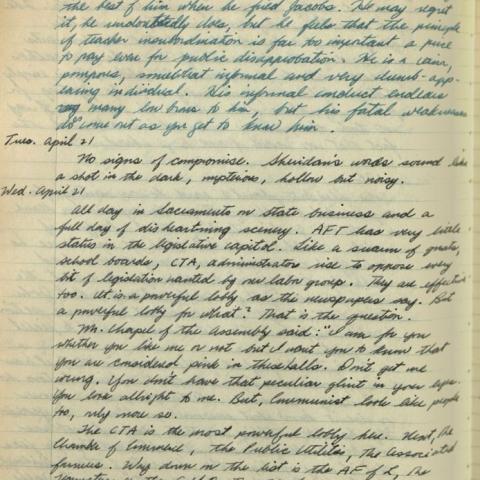 the best of him when he fired Jacobs. He may regret
it, he undoubtedly does, but he feels that the principle
of teacher insubordination is far too important a price
to pay even for public disapprobation. He is a calm,
pompous, somewhat informal and very dumb-app-
earing individual. His informal conduct endears
many low brows to him, but his fatal weaknesses
do come out as you get to know him.
Tues. April 21
No signs of compromise. Sheridan's words sound like
a shot in the dark, mysterious, hollow but noisy.
Wed. April 21
All day in Sacramento on state business and a
full day of disheartning scenery. AFT has very little
status in the legislative capitol. Like a swarm of gnats,
school boards, CTA, administrators rise to oppose every
bit of legislation wanted by our labor group. They are effective
too. It is a powerful lobby as the newspapers say. But
a powerful lobby for what? That is the question.
Mr. Chapel of the Assembly said: "I am for you
whether you like me or not but I want you to know that
you are considered pink in these halls. Don't get me
wrong. You don't have that peculiar glint in your eyes.
You look allright to me. But, Communist look like people
too, only more so.
The CTA is the most powerful lobby here. Next, the
Chamber of Commerce, the Public Utilities, the Associated
farmers. Way down on the list is the AF of L, the